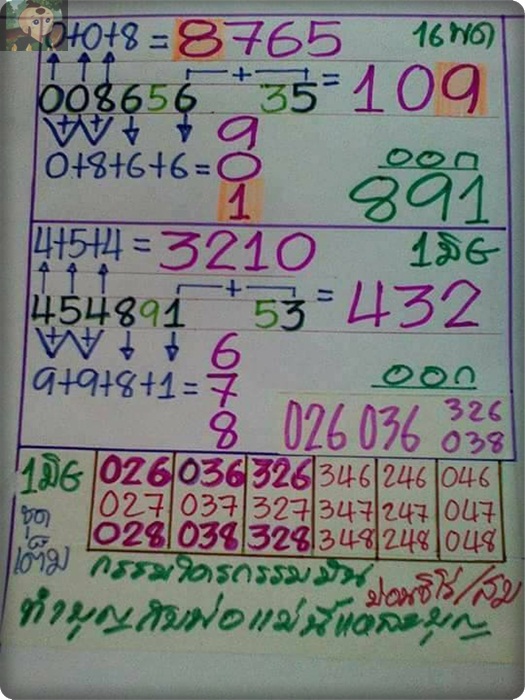 0+0+8 = 8765 16พค
008656 + 35 = 109
0+8+6+6= 9 0 1
ออก
891
4+5+4 = 3210 1มิย
454891 + 53 = 432
9+9+8+1= 6 7 8
ออก
026 036 326
038
1มิย 026 036 326 346 246 046
ชุด 027 037 327 347 247 047
เต็ม 028 038 328 348 248 048
กรรมใครกรรมมัน
ทำบุญกับพ่อแม่นี่แหละบุญ